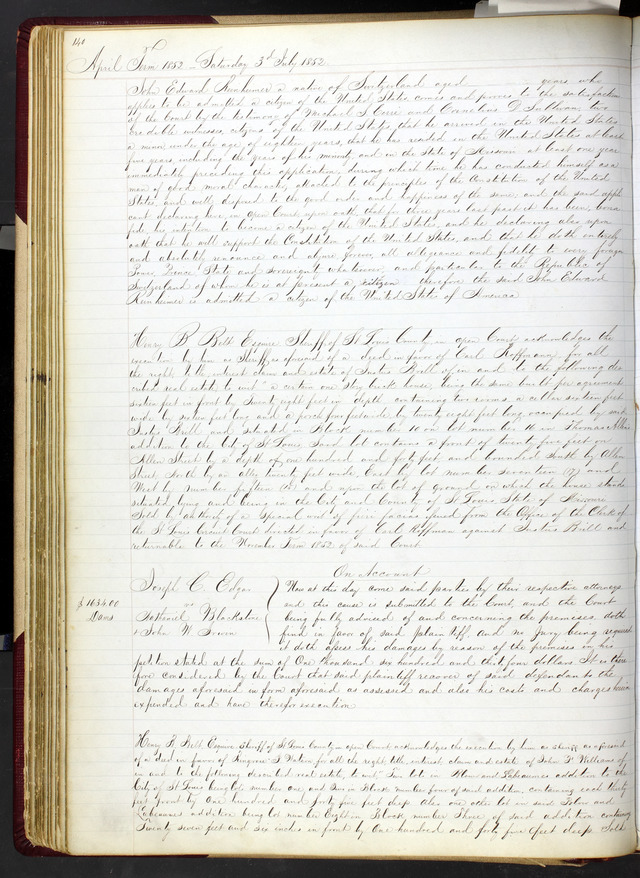 141
April Term 1852 - Saturday 3d July 1852
John Edward Kunheimer a native of Switzerland aged years who
applies to be admitted a citizen of the United States comes and proves to the satisfaction
of the Court by the testimony of Michael S. Cerre and Cornelius D. Sullivan two
credible witnesses, citizens of the United States, that he arrived in the United States
a minor, under the age of eighteen years, that he has resided in the United States at least
five years, including the years of his minority, and in the State of Missouri at least one year
immediately preceding this application, during which time he has conducted himself as a
man of good moral character, attached to the principles of the Constitution of the United
States, and well disposed to the good order and happiness of the same; and the said appli
cant declaring here in open Court, upon oath, that for three years last past it has been, bona
fide, his intention to become a citizen of the United States, and he declaring also upon
oath that he will support the Constitution of the United States, and that he doth entirely
and absolutely renounce and abjure forever all allegiance and fidelity to every foreign
Power, Prince, State and Sovereignty whatsoever, and particularly to the Republic of
Switzerland of whom he is at present a citizen therefore the said John Edward
Kunheimer is admitted a citizen of the United States of America
Henry B Belt Esquire Sheriff of St Louis County in open Court, acknowledges the
execution by him as Sheriff as aforesaid of a deed in favor of Carl Hoffman for all
the right, title, interest claim and estate of Justus Brill of in and to the following des
cribed real estate to wit " a certain one story back house, being the same built per agreement
sixteen feet in front by Twenty eight feet in depth containing two rooms, a cellar sixteen feet
wide by sixteen feet long and a porch five feet wide by twenty eight feet long, occupied by said
Justus Brill and situated in Block number 10 on lot number 16 in Thomas Allen
addition to the City of St Louis, said lot contains a front of twenty five feet on
Allen Street by a depth of one hundred and forty feet, and bounded South by Allen
Street, North by an alley twenty feet wide, East by lot number seventeen (17) and
West by number fifteen (15) and upon the lot of ground on which the house stands
situated lying and being in the City and County of St Louis State of Missouri
Sold by authority of a Special writ of fieri facias issued from the Office of the Clerk of
the St Louis Circuit Court directed in favor of Carl Hoffman against Justus Brill and
returnable to the November Term 1852 of said Court
On Account
Joseph C. Edgar
vs
Nathaniel Blackstone
& John W Brown
$ 1634.00
Dams
Now at this day come said parties by their respective attorneys
and this cause is submitted to the Court, and the Court
being fully advised of and concerning the premises doth
find in favor of said plaintiff and no Jury being required
it doth assess his damages by reason of the premises in his
petition stated at the sum of One thousand six hundred and thirty four dollars It is there
fore considered by the Court that said plaintiff recover of said defendants the
damages aforesaid in form aforesaid as assessed and also his costs and charges herein
expended and have therefor execution
Henry B Belt Esquire, Sheriff of St Louis County in open Court, acknowledges the execution by him as sheriff as aforesaid
of a deed in favor of S Watson for all the right title, interest, claim and estate of John F Williams of
in and to the following described real estate, to wit, Two lots in and Labeaumes addition to the
City of St Louis being lot number one and two in Block number four of said addition containing each thirty
feet front by One hundred and forty five feet deep Also one other lot in said and
Labeaume addition being lot number Eight in Block number Three of said addition containing
Twenty seven feet and six inches in front by One hundred and forty five feet deep Sold